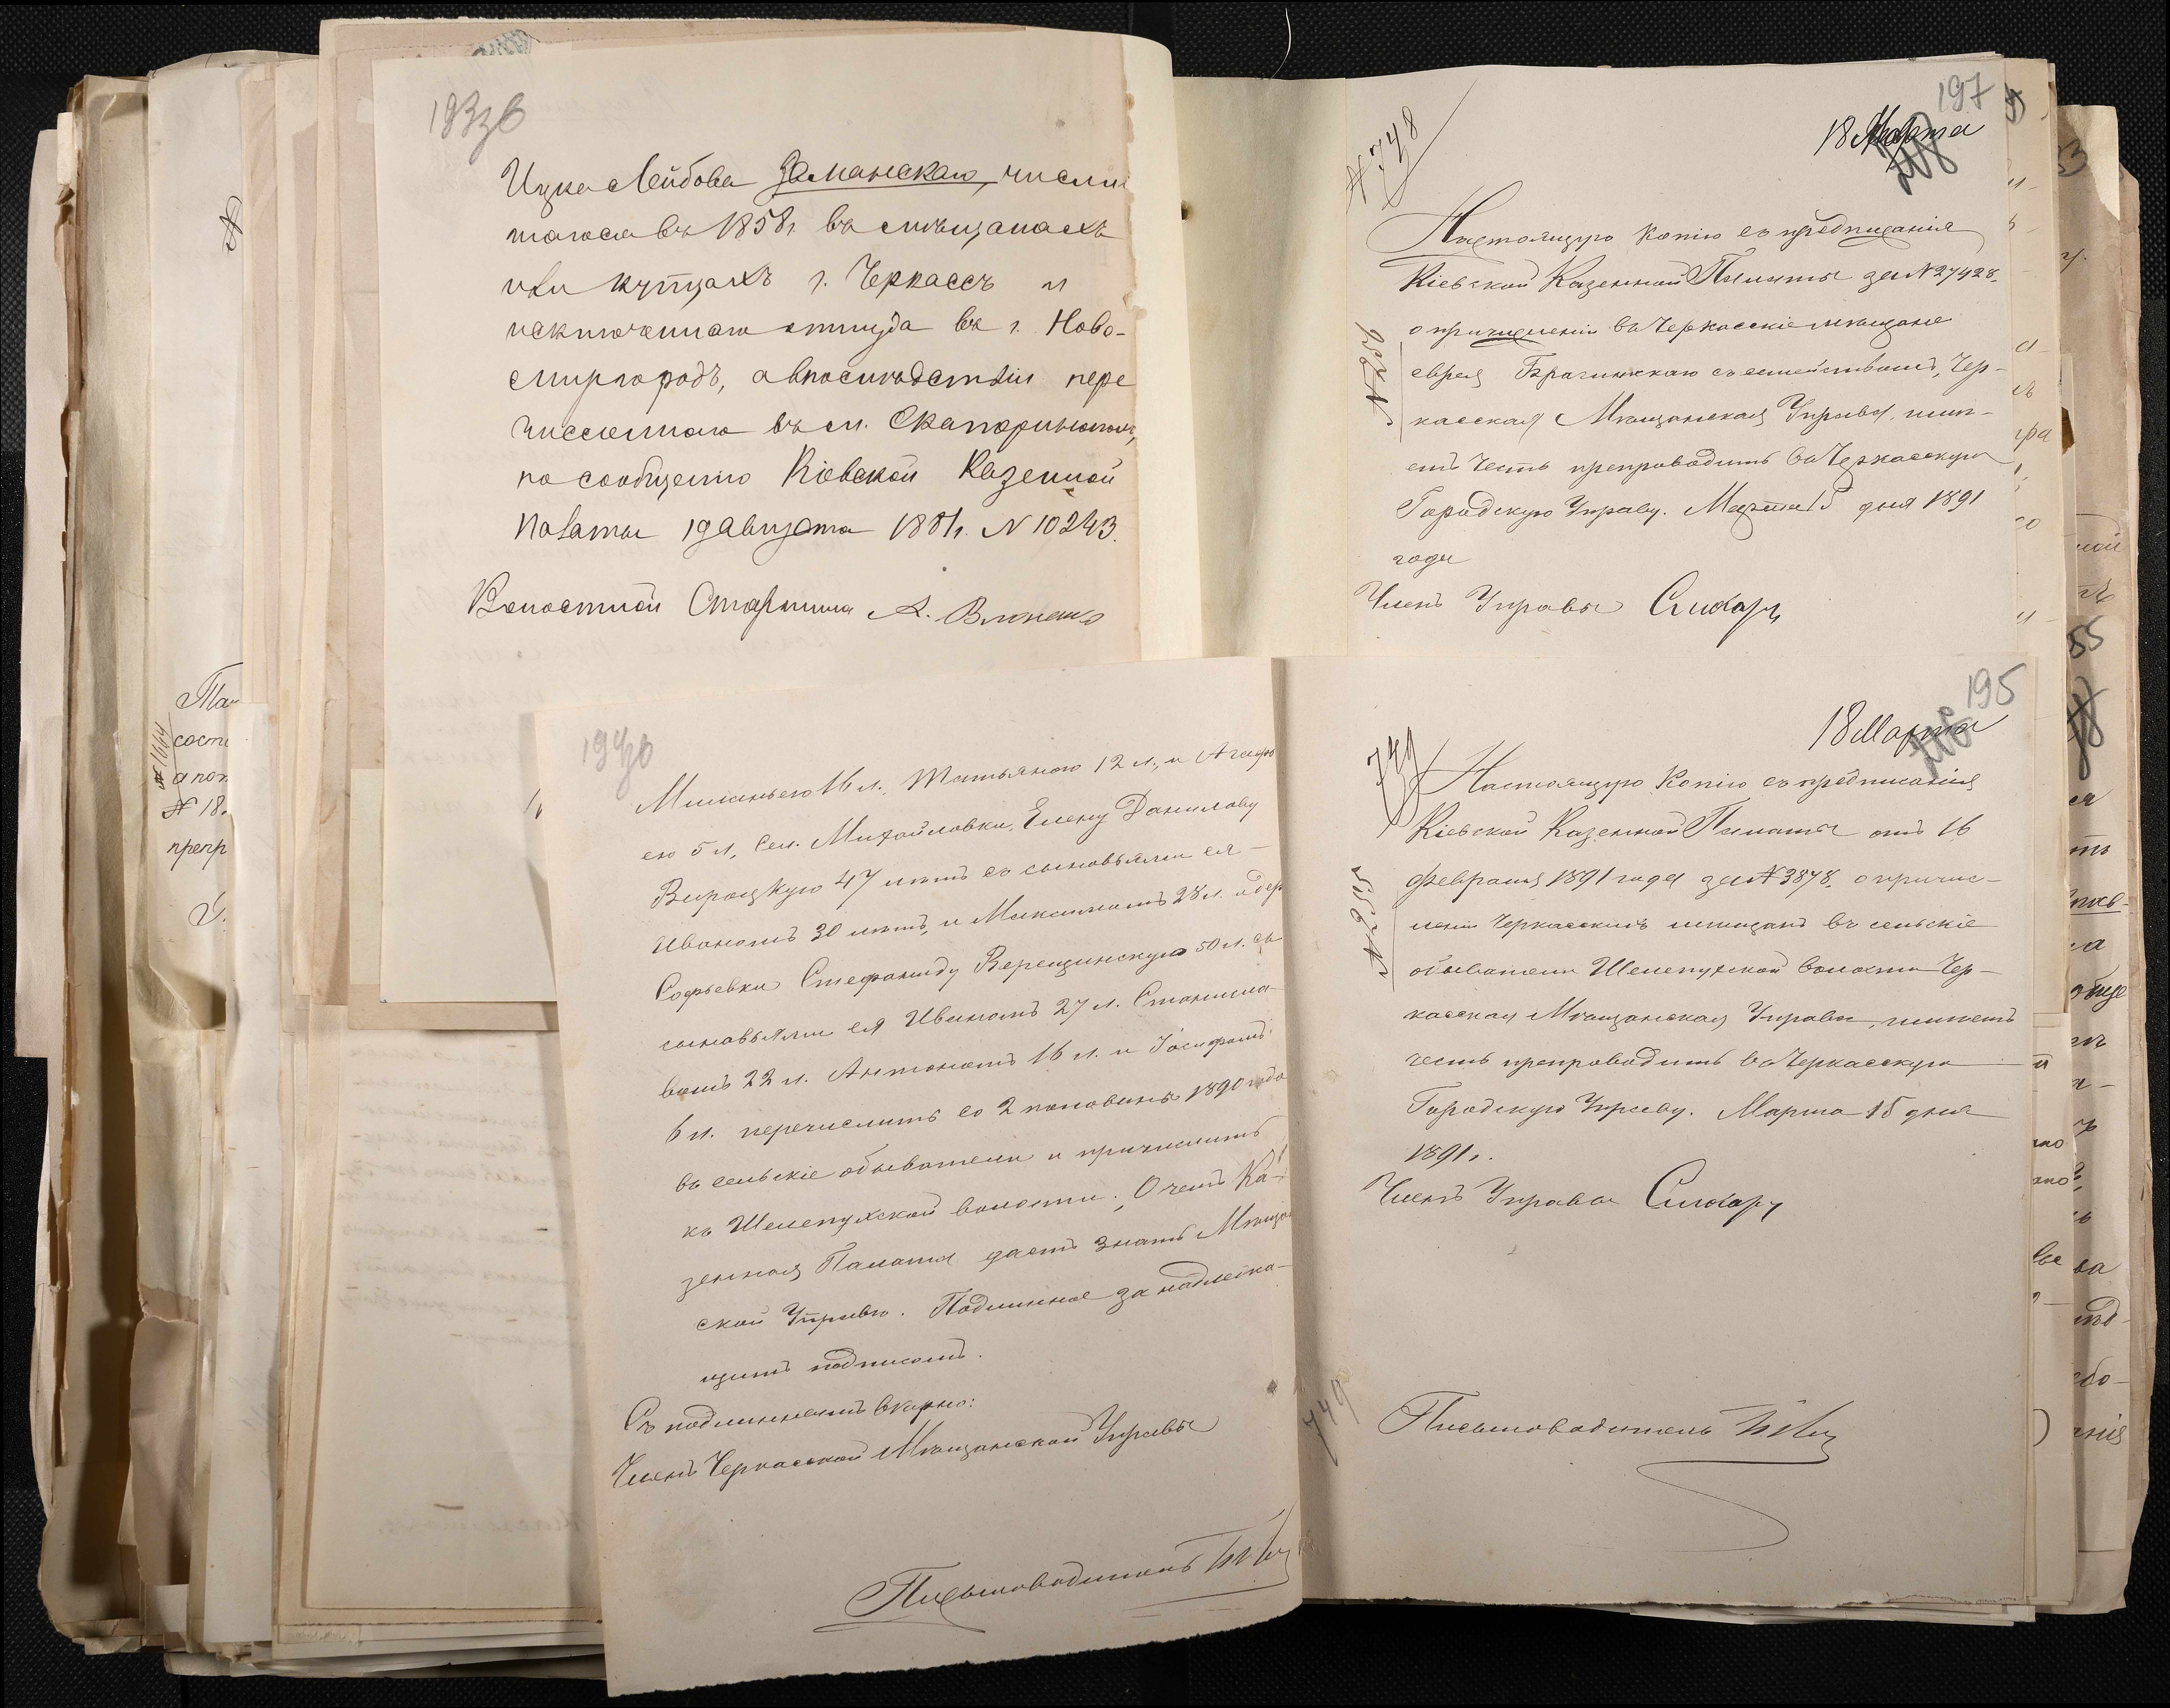 Ицка Лейбова Заманскаго, числив
шагося въ 1858 г. въ мѣщанахъ
или купцахъ г. Черкассъ и
исключеннаго оттуда въ г. Ново-
миргородъ, а впослѣдствіи пере
численнаго въ м. Екатеринополь,
по сообщенію Кіевской Казенной
Палаты 19 Августа 1881 г. N 10243.
Волостной Старшина А.
197
18 Марта
№ 748
Настоящую копію съ предписанія
Кіевской Казенной Палаты за N 27428,
о причисленіи въ Черкасскіе мѣщане
еврея Брагинскаго съ семействомъ, Чер-
касская Мѣщанская Управа имѣ-
етъ честь препроводить въ Черкасскую
Городскую Управу. Марта 15 дня 1891
года
Членъ Управы Слюсарь
194 об
Меланьею 16 л., Татьяною 12 л., и Агафь
ею 5 л., сел. Михайловки, Елену Данилову
Вироцкую 47 лѣтъ съ сыновьями ея
Иваномъ 30 лѣтъ, и Максимомъ 28 л. и дер
Софьевки Стефаниду Верещинскую 50 л. съ
сыновьями ея Иваномъ 27 л. Станисла-
вомъ 22 л. Антономъ 16 л. и Іосифомъ
6 л. перечислить со 2 половины 1890 года
въ сельскіе обыватели и причислить
къ Шелепухской волости. О чемъ Ка-
зенная Палата даетъ знать Мѣщан
ской Управѣ. Подлинное за надлежа-
щимъ подписомъ.
Съ подлиннымъ вѣрно:
Членъ Черкасской Мѣщанской Управы
Письмоводитель
195
18 Марта
749
Настоящую Копію съ предписанія
Кіевской Казенной Палаты отъ 16
февраля 1891 года за № 3878, о причис-
леніи Черкасскихъ мѣщанъ въ сельскіе
обыватели Шелепухской волости Чер-
касская Мѣщанская Управа, имѣетъ
честь препроводить въ Черкасскую
Городскую Управу. Марта 15 дня
1891 г.
Членъ Управы Слюсарь
749
Письмоводитель